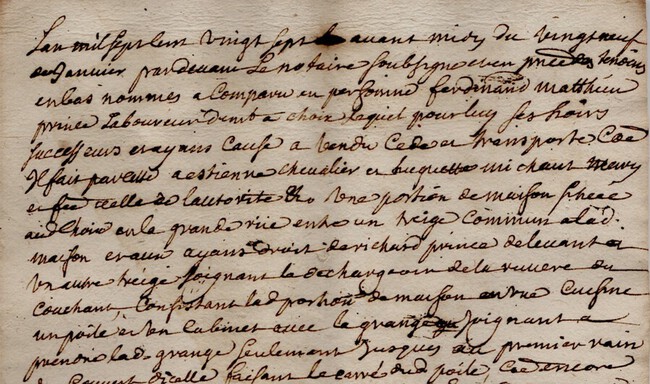 Lan mil sept cent vingt sept avant midy du vingt neuf
de Janvier pardevant Le notaire soubsigné et en pnce des tesmoins
en bas nommes a Comparu en personne ferdinand Matthieu
prince Laboureur demt a choix lequel pour luy ses hoirs
successeurs et ayans Cause a vendu Cede et transporte Cede
Il fait par cette a estienne Chevalier et huguette michaut
et celle de lautorite Une portion de maison scitée
aud Choix en la grande rüe entre un treige commun a lad.
maison et aux ayans droit de richard prince de levant et
Un autre treige joignant la dechargeoir de la riviere du
Couchant, Consistant lad portion de maison en une Cuisine
un poile et Un Cabinet avec la grange joignant a
prendre lad. grange seulement jusques au premier rain
du Couvert dicelle faisant le carré dud poile encore